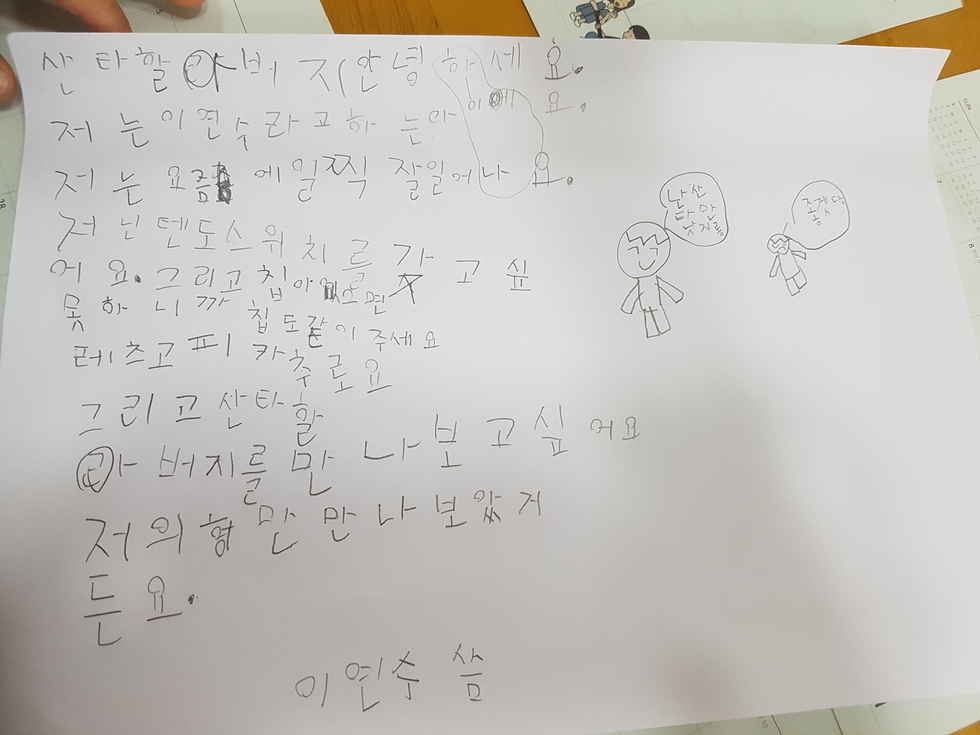 산타할아버지안녕하세요.
저는이연수라고하는아이에요.
저는요즘에일찍잘일어나요.
저닌텐도스위치를가
고싶
어요. 그리고칩아없으면
못하니까칩도같이주세요
레츠고피카츄로요
그리고산타할
아버지를만나보고싶어요
저의형만만나보았거
든요.
이연수씀
난산
타만
낫지롱
좋겟다